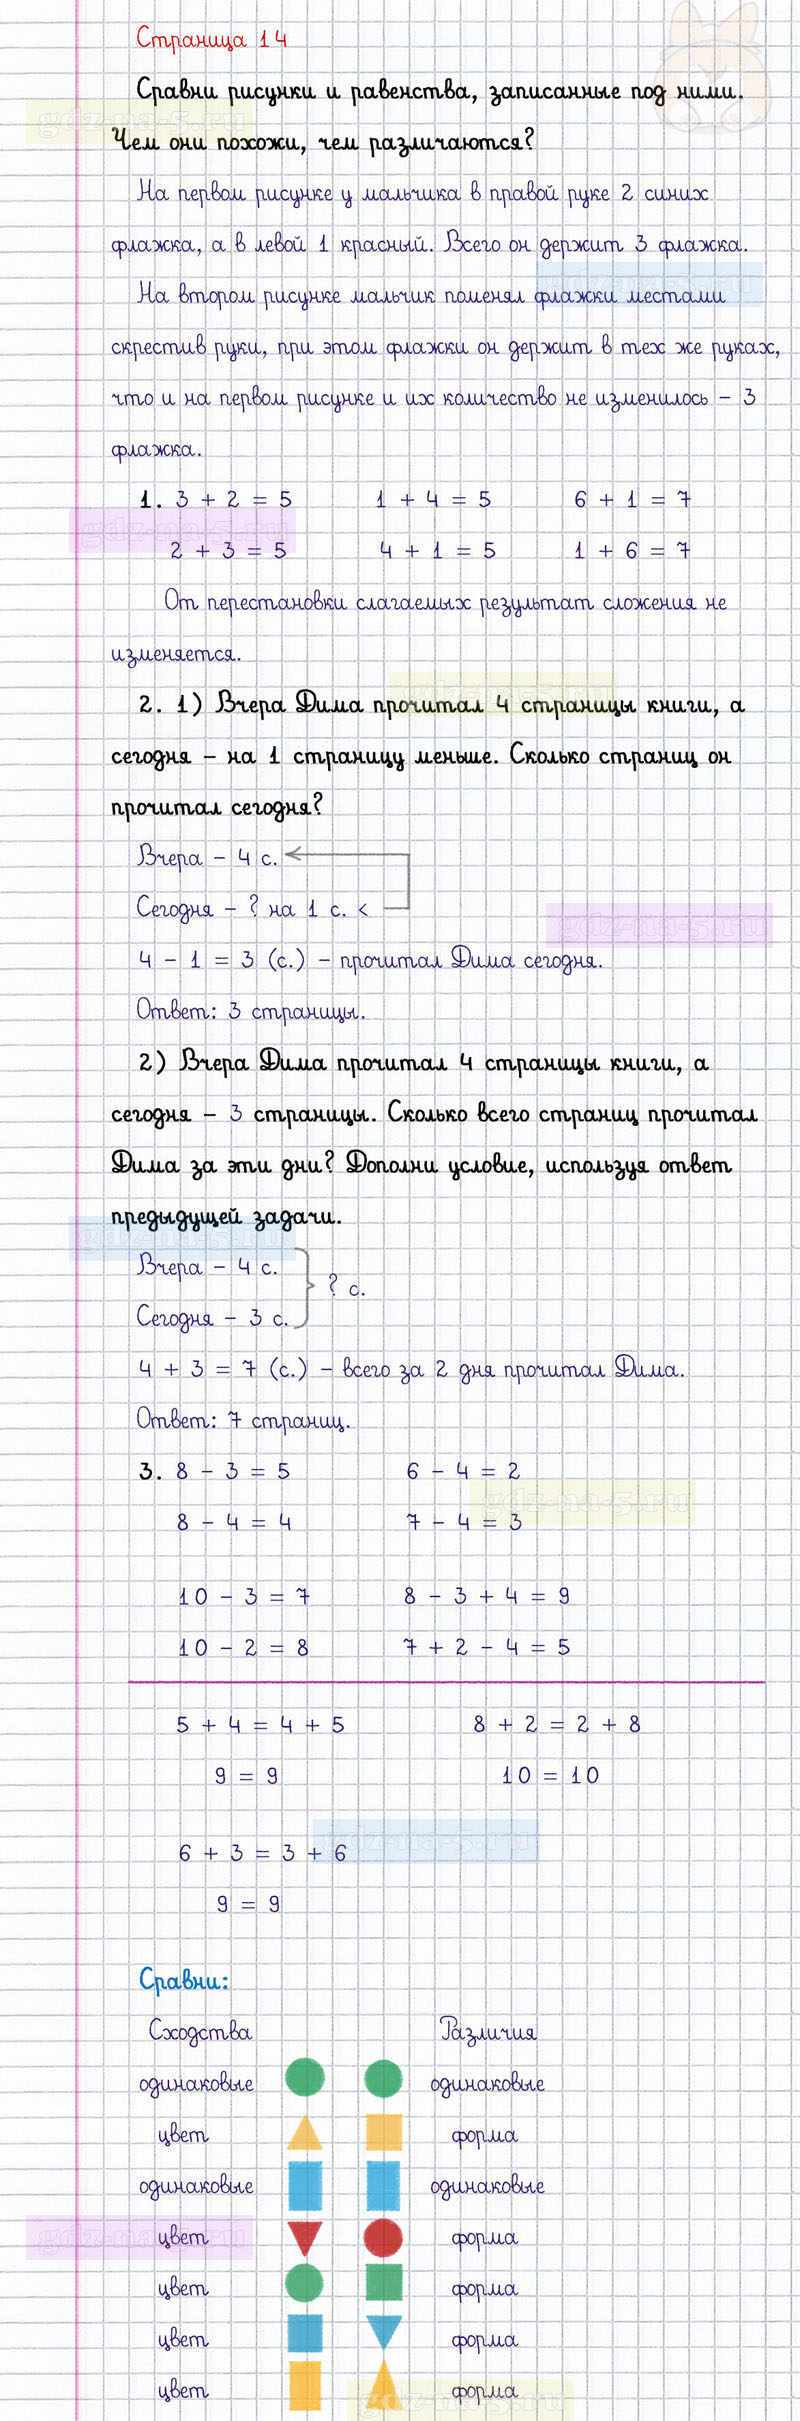 Страница 14
Сравни рисунки и равенства, записанные под ними.
gdz-na-5.ru
Чем они похожи, чем различаются?
На первом рисунке у мальчика в правой руке 2 синих
флажка, а в левой 1 красный. Всего он держит 3 флажка.
gdz-na-5.ru
На втором рисунке мальчик поменял флажки местами
скрестив руки, при этом флажки он держит в тех же руках,
что и на первом рисунке и их количество не изменилось – 3
флажка.
1. 3 + 2 = 5 1 + 4 = 5 6 + 1 = 7
gdz-na-5.ru
2 + 3 = 5 4 + 1 = 5 1 + 6 = 7
От перестановки слагаемых результат сложения не
изменяется.
gdz-na-5.ru
2. 1) Вчера Дима прочитал 4 страницы книги, а
сегодня – на 1 страницу меньше. Сколько страниц он
прочитал сегодня?
Вчера – 4 с.
Сегодня – ? на 1 с. <
gdz-na-5.ru
4 - 1 = 3 (с.) – прочитал Дима сегодня.
Ответ: 3 страницы.
2) Вчера Дима прочитал 4 страницы книги, а
сегодня – 3 страницы. Сколько всего страниц прочитал
Дима за эти дни? Дополни условие, используя ответ
предыдущей задачи.
gdz-na-5.ru
Вчера – 4 с.
? с.
Сегодня – 3 с.
4 + 3 = 7 (с.) – всего за 2 дня прочитал Дима.
Ответ: 7 страниц.
3. 8 - 3 = 5 6 - 4 = 2
gdz-na-5.ru
8 - 4 = 4 7 - 4 = 3
10 - 3 = 7 8 - 3 + 4 = 9
10 - 2 = 8 7 + 2 - 4 = 5
5 + 4 = 4 + 5 8 + 2 = 2 + 8
9 = 9 10 = 10
gdz-na-5.ru
6 + 3 = 3 + 6
9 = 9
Сравни:
Сходства Различия
одинаковые одинаковые
цвет форма
одинаковые одинаковые
цвет форма
gdz-na-5.ru
цвет форма
цвет форма
цвет форма
gdz-na-5.ru